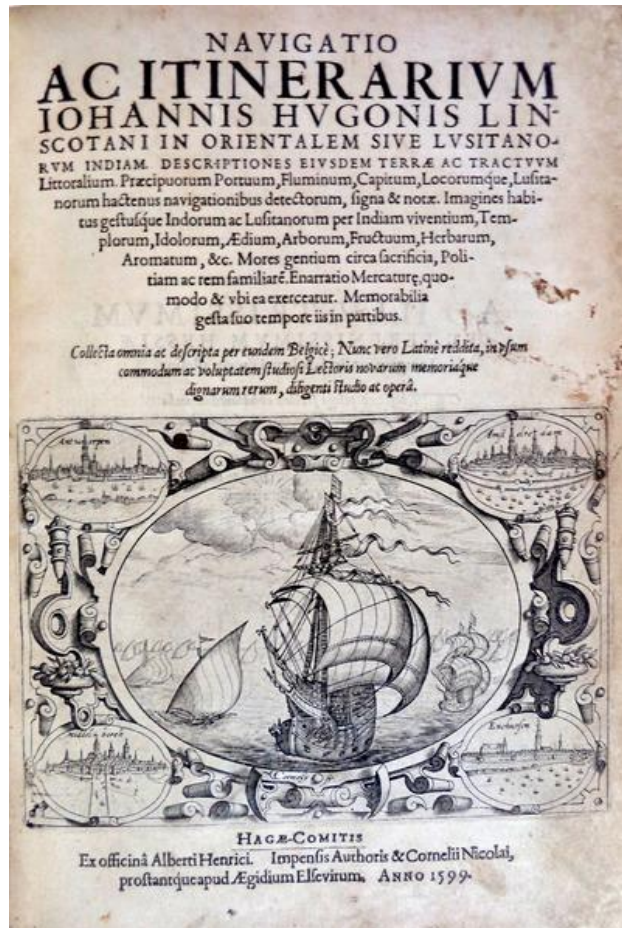 NAVIGATIO
AC ITINERARIVM
IOHANNIS HVGONIS LIN-
SCOTANI IN ORIENTALEM SIVE LVSITANO-
RVM INDIAM. DESCRIPTIONES EIVSDEM TERRÆ AC TRACTVVM
Littoralium. Præcipuorum Portuum, Fluminum, Capitum, Locorumque, Lusita-
norum hactenus navigationibus detectorum, signa & notæ. Imagines habi-
tus gestusque Indorum ac Lusitanorum per Indiam viventium, Tem-
plorum, Idolorum, Ædium, Arborum, Fructuum, Herbarum,
Aromatum, &c. Mores gentium circa sacrificia, Poli-
tiam ac rem familiarẽ. Enarratio Mercaturę, quo-
modo & vbi ea exerceatur. Memorabilia
gesta suo tempore iis in partibus.
Collecta omnia ac descripta per eundem Belgicè; Nunc vero Latinè reddita, in vsum
commodum ac voluptatem studiosi Lectoris novarum memoriaque
dignarum rerum, diligenti studio ac operâ.
Antwerpen
Amstelredam
Enchuysen
HAGÆ-COMITIS
Ex officinâ Alberti Henrici. Impensis Authoris & Cornelii Nicolai,
prostantque apud Ægidium Elsevirum. ANNO 1599.